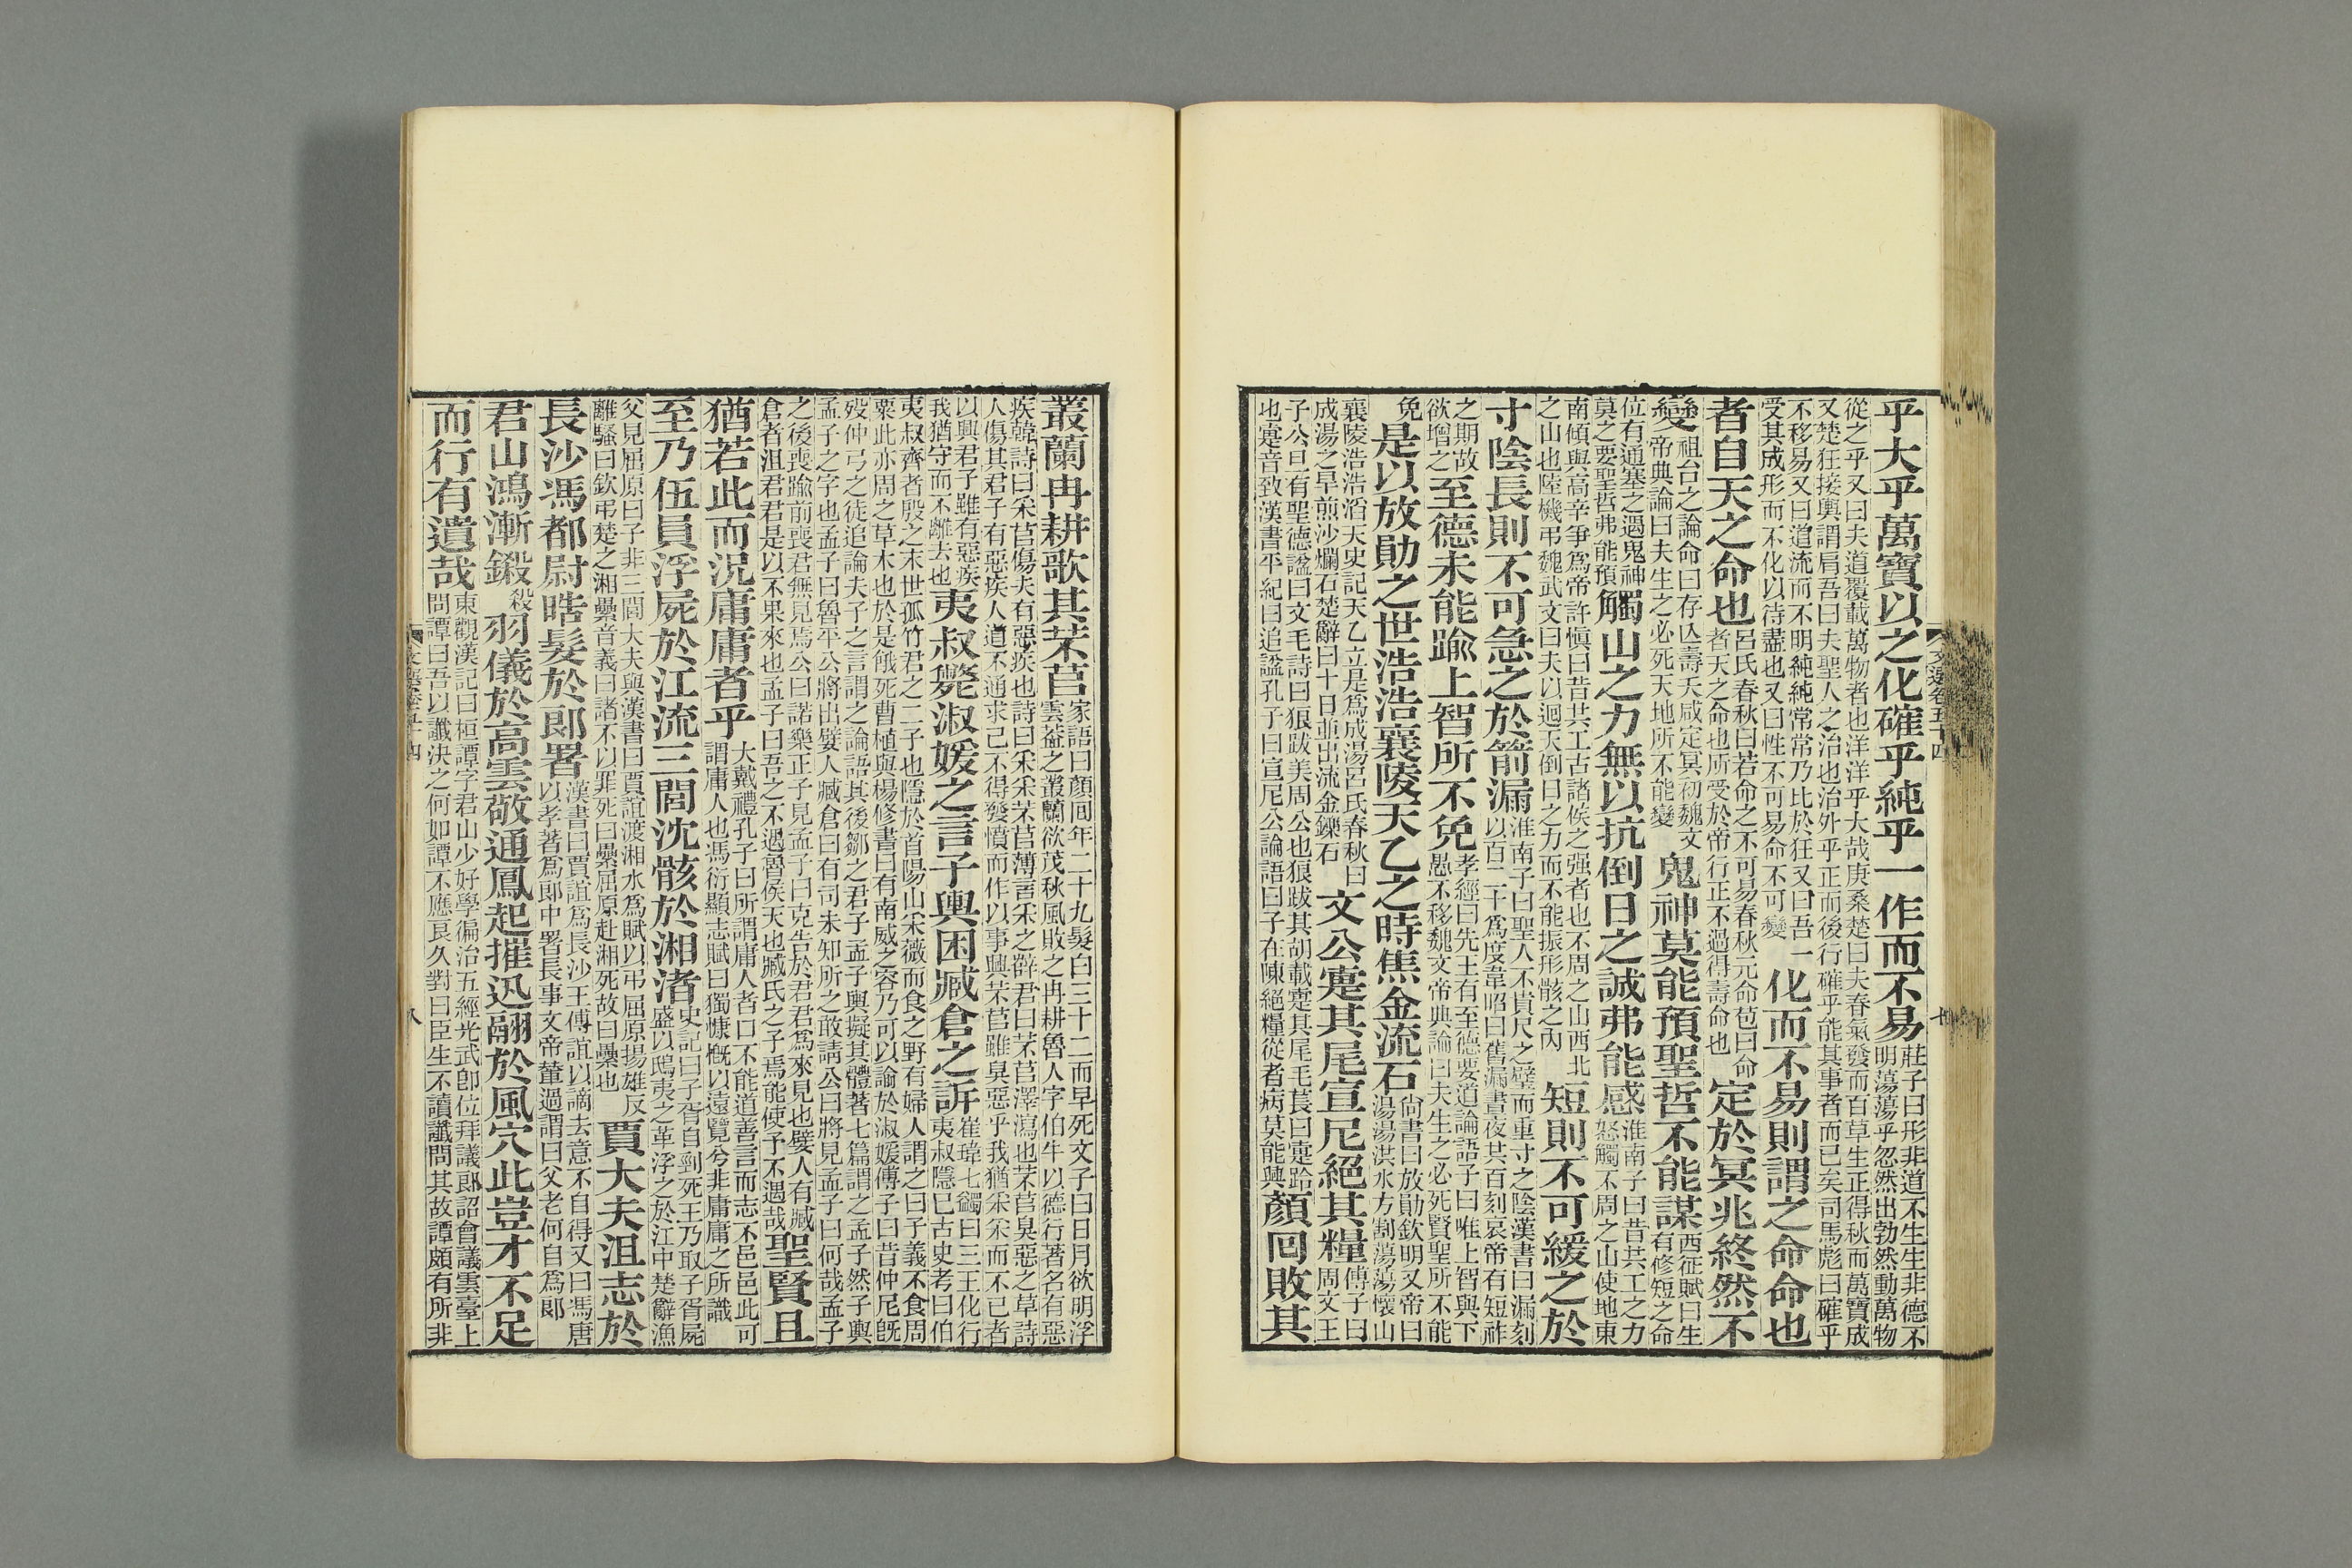 乎大乎萬寶以之化確乎純乎一作而不易莊子曰形非道不生生非德不
明蕩蕩乎忽然出勃然動萬物
從之乎又曰夫道覆載萬物者也洋洋乎大哉庚桑楚曰夫春氣發而百草生正得秋而萬寶成
又楚狂接輿謂肩吾曰夫聖人之治也治外乎正而後行確乎能其事者而已矣司馬彪曰確乎
不移易又曰道流而不明純純常常乃比於狂又曰吾一
受其成形而不化以待盡也又曰性不可易命不可變
化而不易則謂之命命也
者自天之命也呂氏春秋曰若命之不可易春秋元命苞曰命
者天之命也所受於帝行正不過得壽命也
定於冥兆終然不
變祖台之論命曰存亾壽夭咸定冥初魏文
帝典論曰夫生之必死天地所不能變
鬼神莫能預聖哲不能謀西征賦曰生
有修短之命
位有通塞之遇鬼神
莫之要聖哲弗能預
觸山之力無以抗倒日之誠弗能感淮南子曰昔共工之力
怒觸不周之山使地東
南傾與高辛爭爲帝許慎曰昔共工古諸侯之强者也不周之山西北
之山也陸機弔魏武文曰夫以迴天倒日之力而不能振形骸之內
短則不可緩之於
寸陰長則不可急之於箭漏淮南子曰聖人不貴尺之璧而重寸之陰漢書曰漏刻
以百二十爲度韋昭曰舊漏晝夜共百刻哀帝有短祚
之期故
欲增之
至德未能踰上智所不免孝經曰先王有至德要道論語子曰唯上智與下
愚不移魏文帝典論曰夫生之必死賢聖所不能
免
是以放勛之世浩浩襄陵天乙之時焦金流石尚書曰放勛欽明又帝曰
湯湯洪水方割蕩蕩懷山
襄陵浩浩滔天史記天乙立是爲成湯呂氏春秋曰
成湯之旱煎沙爛石楚辭曰十日並出流金鑠石
文公疐其尾宣尼絕其糧傅子曰
周文王
子公旦有聖德諡曰文毛詩曰狼跋美周公也狼跋其胡載疐其尾毛萇曰疐跲
也疐音致漢書平紀曰追諡孔子曰宣尼公論語曰子在陳絕糧從者病莫能興
顏回敗其
叢蘭冉耕歌其芣苢家語曰顏回年二十九髮白三十二而早死文子曰日月欲明浮
雲葢之叢蘭欲茂秋風敗之冉耕魯人字伯牛以德行著名有惡
疾韓詩曰采苢傷夫有惡疾也詩曰采采芣苢薄言采之薛君曰芣苢澤瀉也芣苢臭惡之草詩
人傷其君子有惡疾人道不通求已不得發憤而作以事興芣苢雖臭惡乎我猶采采而不已者
以興君子雖有惡疾
我猶守而不離去也
夷叔斃淑媛之言子輿困臧倉之訴崔瑋七蠲曰三王化行
夷叔隱己古史考曰伯
夷叔齊者殷之末世孤竹君之二子也隱於首陽山采薇而食之野有婦人謂之曰子義不食周
粟此亦周之草木也於是餓死曹植與楊修書曰有南威之容乃可以論於淑媛傅子曰昔仲尼旣
歿仲弓之徒追論夫子之言謂之論語其後鄒之君子孟子輿擬其體著七篇謂之孟子然子輿
孟子之字也孟子曰魯平公將出嬖人臧倉曰有司未知所之敢請公曰將見孟子曰何哉孟子
之後喪踰前喪君無見焉公曰諾樂正子見孟子曰克告於君君爲來見也嬖人有臧
倉者沮君君是以不果來也孟子曰吾之不遇魯侯天也臧氏之子焉能使予不遇哉
聖賢且
猶若此而況庸庸者乎大戴禮孔子曰所謂庸人者口不能道善言而志不邑邑此可
謂庸人也馮衍顯志賦曰獨慷慨以遠覽兮非庸庸之所識
至乃伍員浮屍於江流三閭沈骸於湘渚史記曰子胥自剄死王乃取子胥屍
盛以鴟夷之革浮之於江中楚辭漁
父見屈原曰子非三閭大夫與漢書曰賈誼渡湘水爲賦以弔屈原揚雄反
離騷曰欽弔楚之湘纍音義曰諸不以罪死曰纍屈原赴湘死故曰纍也
賈大夫沮志於
長沙馮都尉晧髮於郎署漢書曰賈誼爲長沙王傅誼以謫去意不自得又曰馮唐
以孝著爲郎中署長事文帝輦過謂曰父老何自爲郎
君山鴻漸鎩殺羽儀於高雲敬通鳳起摧迅翮於風穴此豈才不足
而行有遺哉東觀漢記曰桓譚字君山少好學徧治五經光武卽位拜議郎詔會議雲臺上
問譚曰吾以讖決之何如譚不應良久對曰臣生不讀讖問其故譚頗有所非
文選卷五十四
八